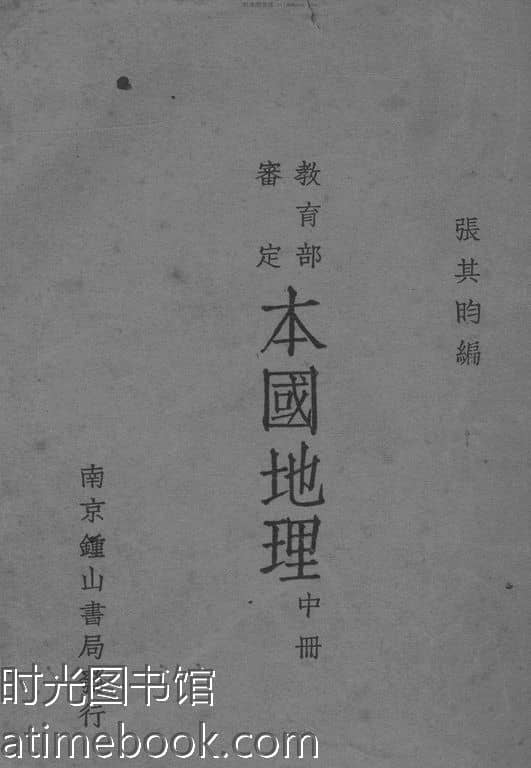 張其昀編
教育部
審定
本國地理中冊
南京鍾山書局發行
时光图书馆
atimebook.com